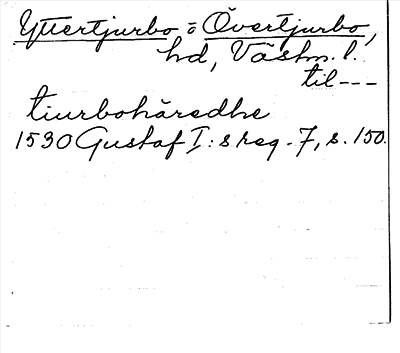 Yttertjurbo o Övertjurbo,
hd, Västm. l.
til---
tiurbohäredhe
1530 Gustaf I: s reg. 7, s. 150.